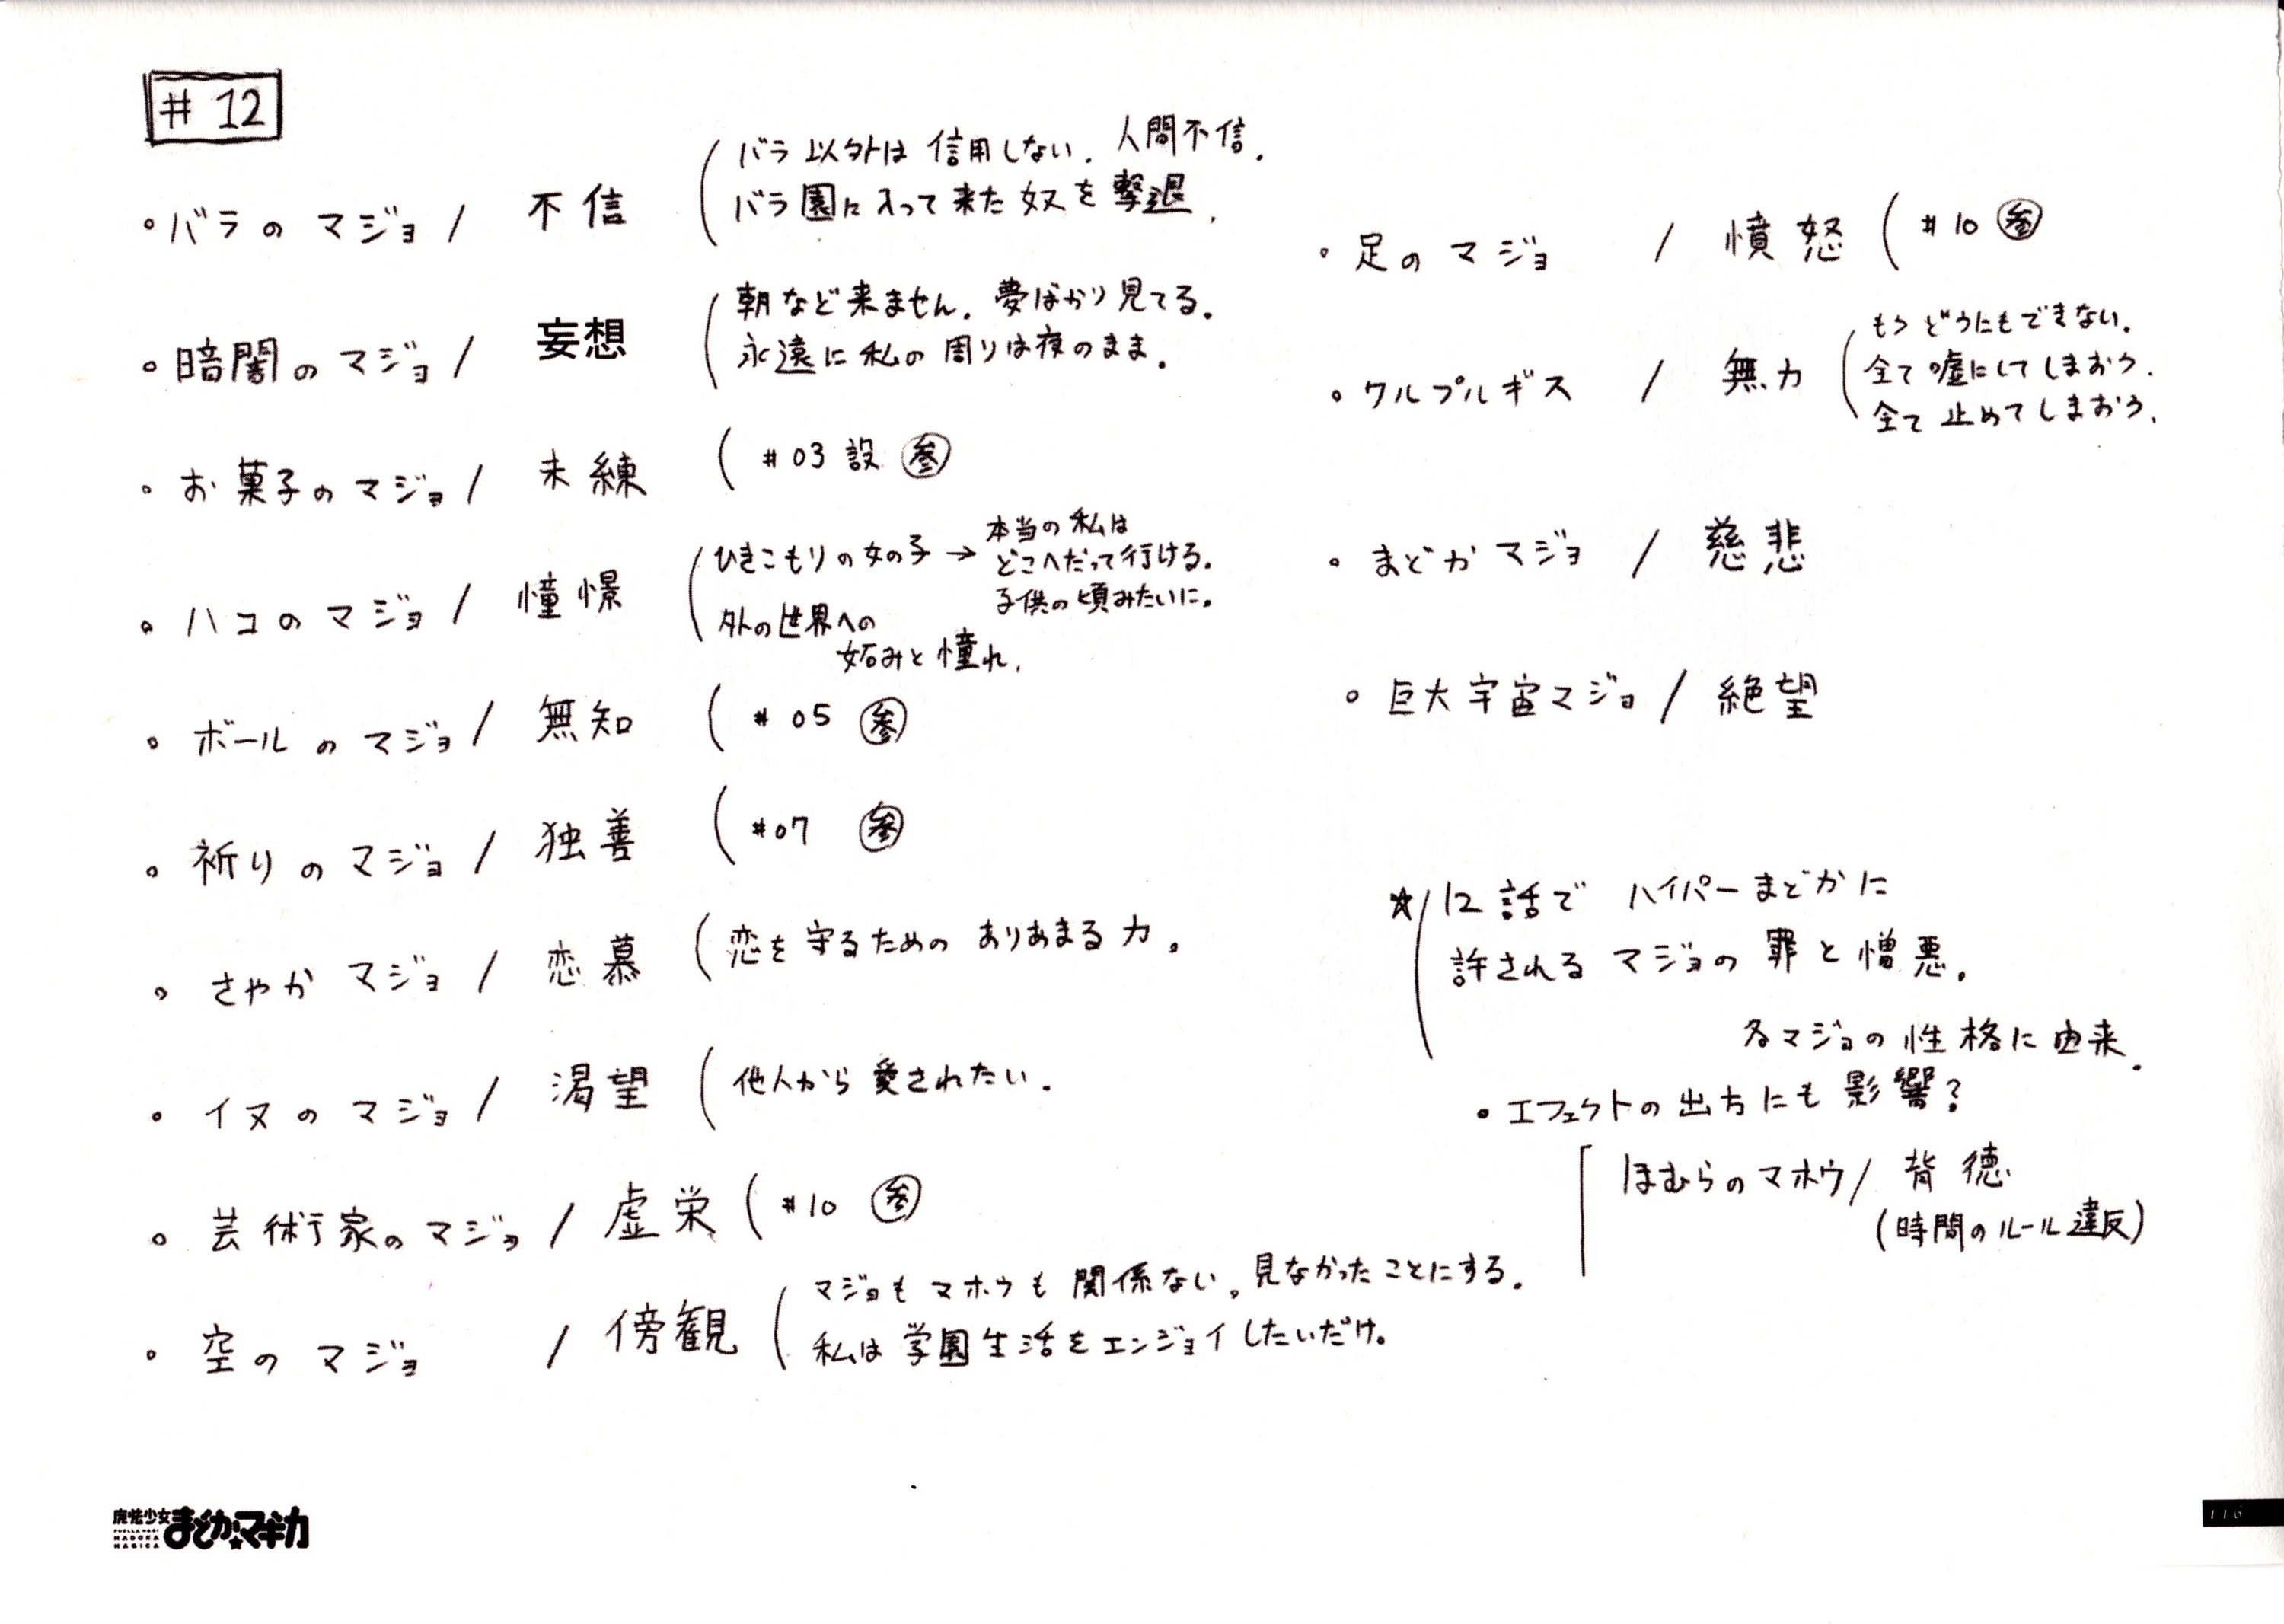 # 12
・バラの マジョ / 不信
バラ 以外は 信用しない. 人間不信.
バラ園に 入って 来た 奴を 撃退.
・暗闇の マジョ / 妄想
朝など 来ません. 夢ばかり 見てる.
永遠に 私の 周りは 夜のまま.
・お菓子の マジョ / 未練
# 03 設 参
・ハコの マジョ / 憧憬
ひきこもりの女の子 → 本当の 私は
どこへだって行ける.
子供の頃みたいに.
外の世界への
妬みと憧れ.
・ボールの マジョ / 無知
# 05 参
・祈りの マジョ / 独善
#07 参
・さやか マジョ / 恋慕
恋を 守るための ありあまる 力.
・イヌの マジョ / 渇望
他人から 愛されたい.
・芸術家の マジョ / 虚栄
#10 参
・空の マジョ / 傍観
マジョも マホウも 関係ない. 見なかったことにする.
私は 学園生活を エンジョイ したいだけ.
・足の マジョ / 憤怒
#10 参
・ワルプルギス / 無力
もう どうにもできない.
全て 嘘にして しまおう.
全て 止めて しまおう.
・まどか マジョ / 慈悲
・巨大宇宙マジョ / 絶望
☆ 12話で ハイパーまどかに
許される マジョの 罪と 憎悪.
各マジョの 性格に 由来.
・エフェクトの 出方にも 影響?
ほむらのマホウ / 背徳
(時間の ルール 違反)
魔法少女
まどか☆マギカ
PUELLA MAGI
MADOKA
MAGICA
116